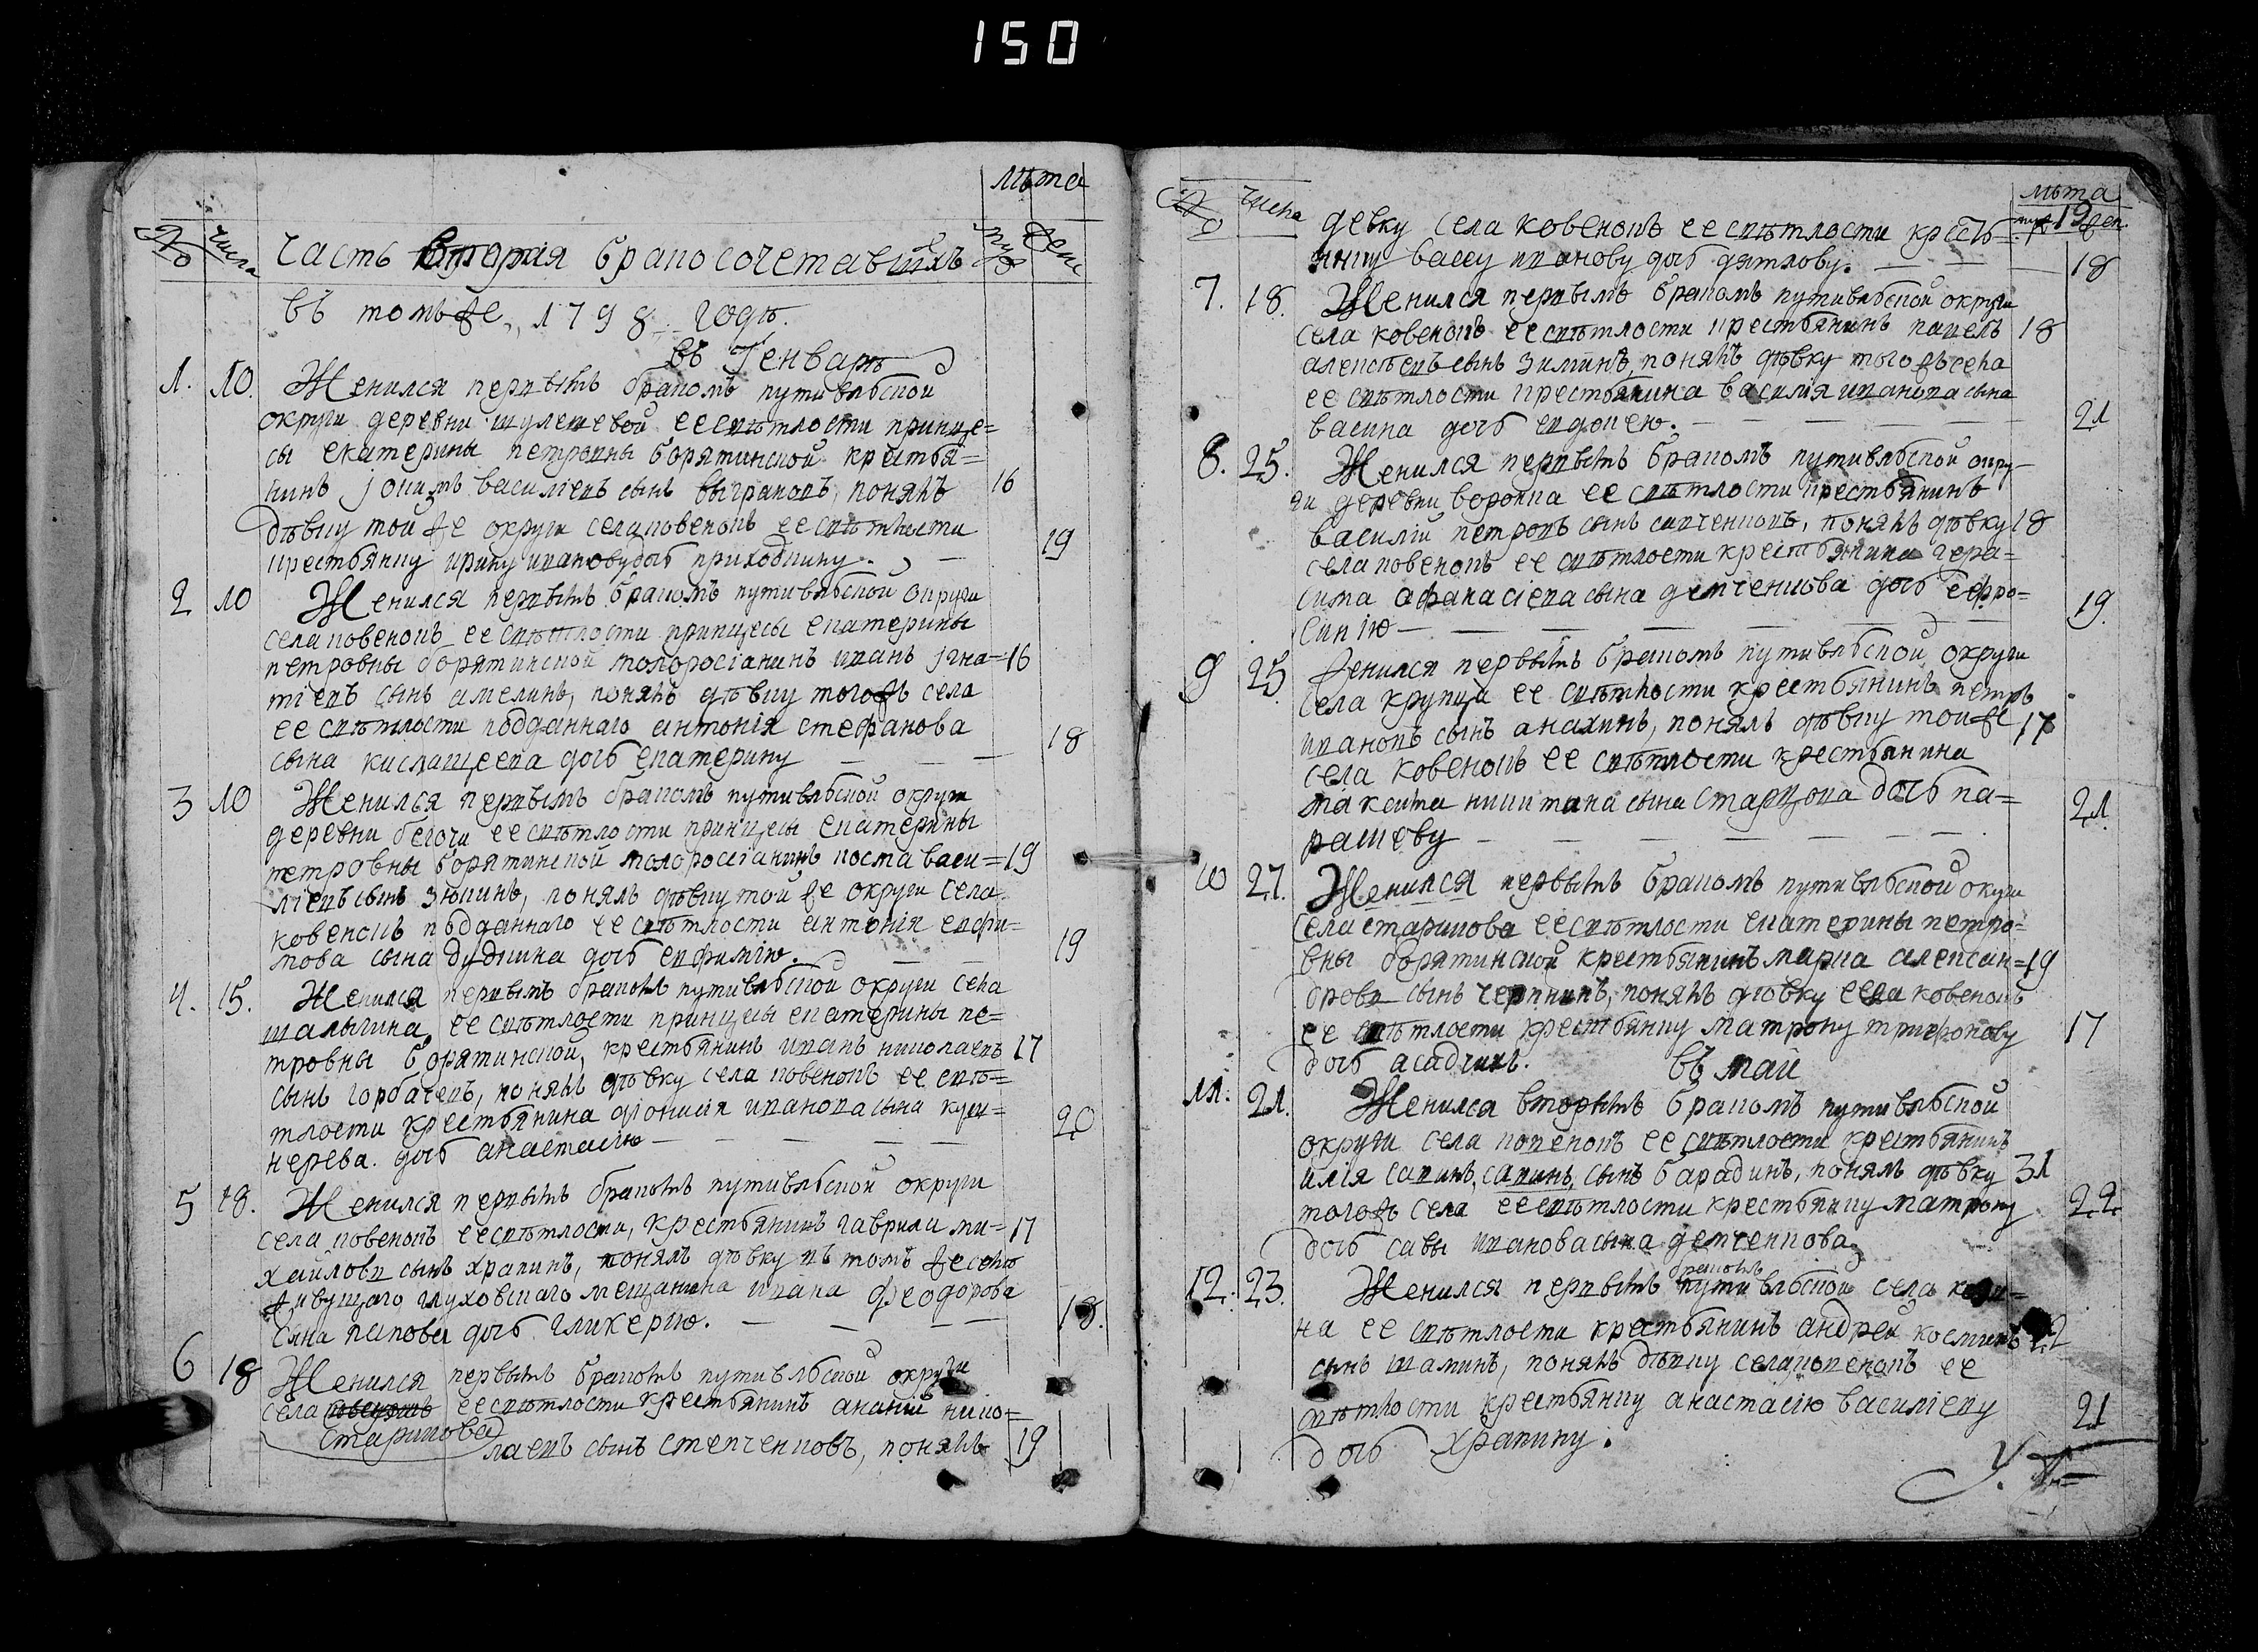 150
лѣта
№ числа муж жен
часть вторая бракосочетавшихъ
въ томъже 1798 годѣ.
въ Генварѣ
1. 10. Женился первымъ бракомъ путивлъской
округи деревни шулешевой ее свѣтлости принце=
сы екатерины петровны борятинской крестья=
нинъ василіевъ сынъ понялъ 16
дѣвку той же округи села ковенокъ ее свѣтлости
крестьянку ирину иванову дочь приходкину. 19
2 10 Женился первымъ бракомъ путивлъской округи
села ковенокъ ее свѣтлости принцесы екатерины
петровны борятинской малоросіянинъ иванъ игна= 16
тіевъ сынъ амелинъ, понялъ дѣвку тогожъ села
ее свѣтлости подданнаго антонія стефанова
сына дочь екатерину 18
3 10 Женился первымъ бракомъ путивлъской округи
деревни бегочи ее свѣтлости принцесы екатерины
петровны борятинской малоросіянинъ коста васи= 19
ліевъ сынъ зюкинъ, понялъ дѣвку той же округи села
ковенокъ подданнаго ее свѣтлости антонія евфи=
мова сына дудкина дочь евфимію. 19
4. 15. Женился первымъ бракомъ путивлъской округи села
шалыгина ее свѣтлости принцесы екатерины пе=
тровны борятинской, крестьянинъ иванъ николаевъ 17
сынъ горбачевъ, понялъ дѣвку села ковенокъ ее свѣ=
тлости крестьянина діонисія иванова сына куш=
нерева дочь анастасію 20
5 18. Женился первымъ бракомъ путивлъской округи
села ковенокъ ее свѣтлости, крестьянинъ гаврила ми= 17
хайловъ сынъ храпинъ, понялъ дѣвку въ томъ же селѣ
живущаго глуховскаго мещанина ивана феодорова
сына попова дочь гликерію. 18.
6 18 Женился первымъ бракомъ путивлъской округи
села ковенокъ ее свѣтлости крестьянинъ ананій нико=
старикова
лаевъ сынъ степченковъ, понялъ 19
№ числа лѣта
муж жен.
девку села ковенокъ ее свѣтлости кресть= 19
янку вассу иванову дочь дятлову. 18
7. 18. Женился первымъ бракомъ путивлъской округи
села ковенокъ ее свѣтлости крестьянинъ павелъ 18
алексѣевъ сынъ зиминъ, понялъ дѣвку тогожъ села
ее свѣтлости крестьянина василія иванова сына
васина дочь евдокею. 21
8. 25. Женился первымъ бракомъ путивлъской окру-
ги деревни воронка ее свѣтлости крестьянинъ
василій петровъ сынъ савченковъ, понялъ дѣвку 18
села ковенокъ ее свѣтлости крестьянина гера=
сима афанасіева сына демченкова дочь ефро=
синію 19.
9 25 женился первымъ бракомъ путивлъской округи
села крупца ее свѣтлости крестьянинъ петръ
ивановъ сынъ анахинъ, понялъ дѣвку той же 17
села ковенокъ ее свѣтлости крестьянина
максима никитина сына старцова дочь па=
рашеву 21.
10 27. Женился первымъ бракомъ путивлъской окуги
села старикова ее свѣтлости екатерины петро=
вны борятинской крестьянинъ марка алексан= 19
дровъ сынъ понялъ дѣвку села ковенокъ
ее свѣтлости крестьянку матрону трифонову 17
дочь асадчихъ. въ маіи
11. 21. Женился вторымъ бракомъ путивлъской
округи села ковенокъ ее свѣтлости крестьянинъ
илія савинъ, савинъ, сынъ барадинъ, понялъ дѣвку 31
тогожъ села ее свѣтлости крестьянку матрону 22
дочь савы иванова сына демченкова
12. 23. Женился первымъ бракомъ путивлъской села
на ее свѣтлости крестьянинъ андрей косминъ 22
сынъ шаминъ, понялъ дѣвку села ковенокъ ее
свѣтлости крестьянку анастасію василіеву 21
дочь храпину.